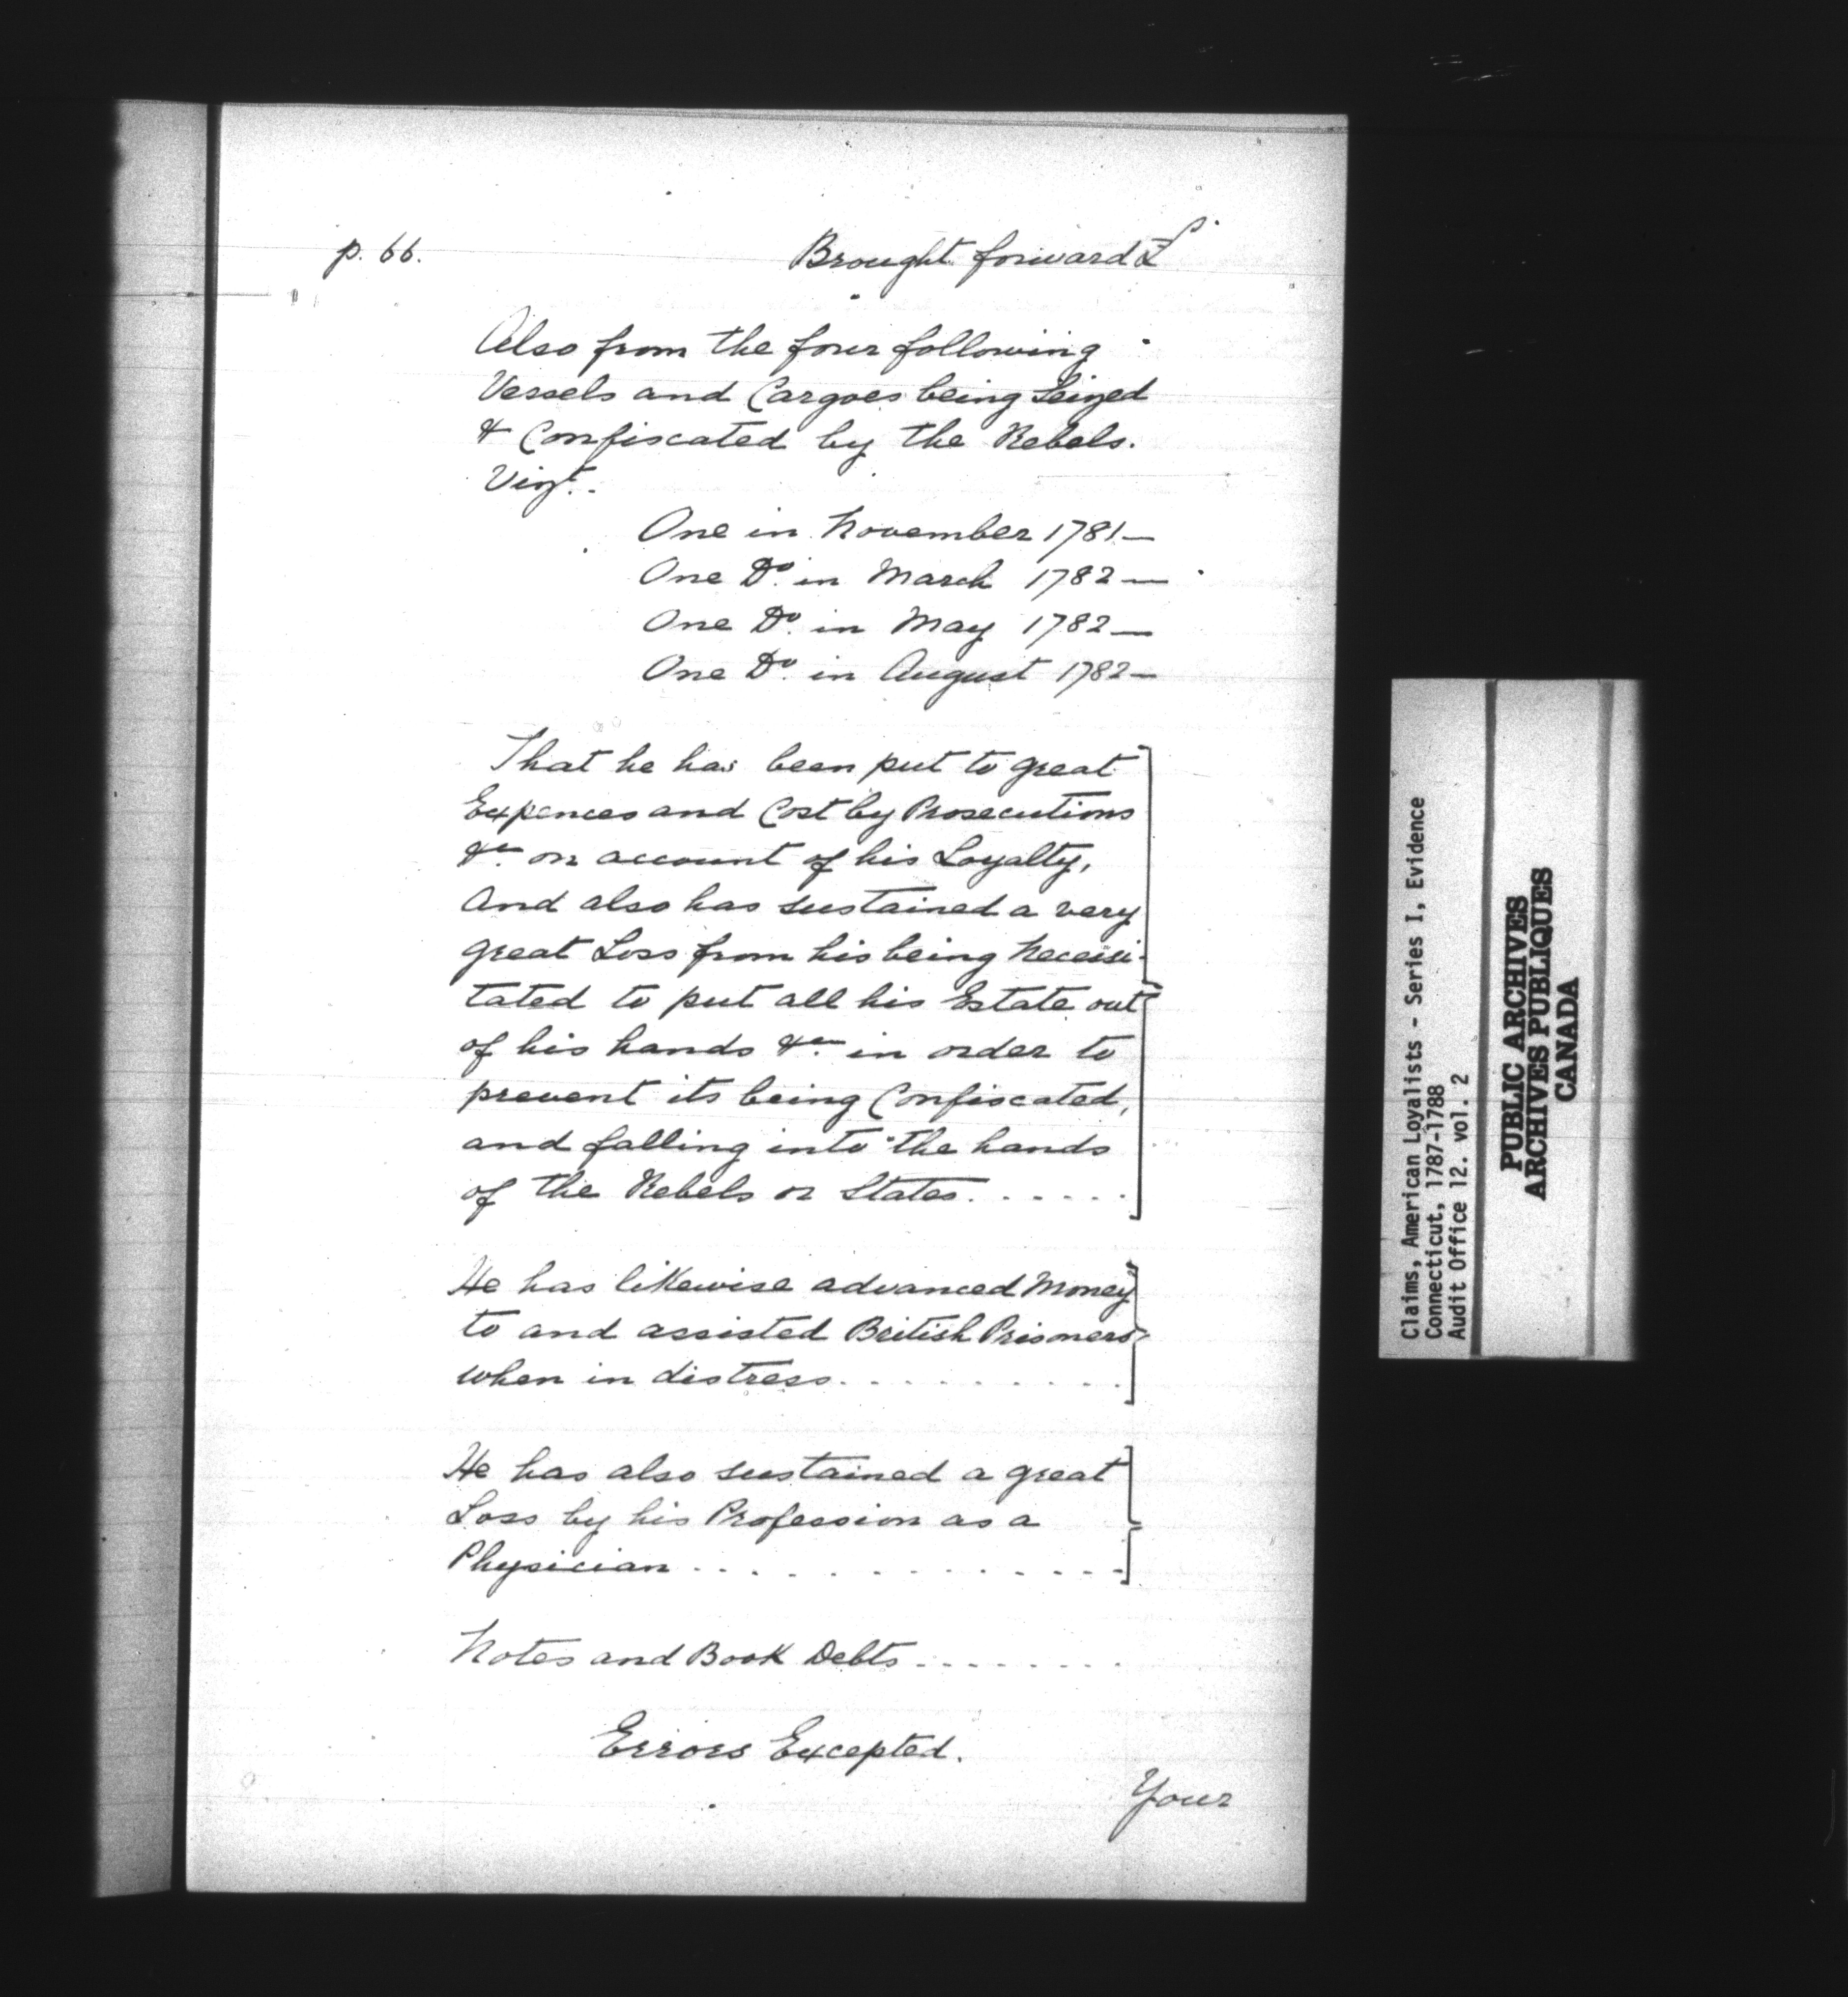 p. 66.
Brought forward £
Also from the four following
Vessels and Cargoes being Seized
& Confiscated by the Rebels.
Vizt.
One in November 1781—
One Do. in March 1782—
One Do. in May 1782—
One Do. in August 1782—
That he has been put to great
Expences and Cost by Prosecutions
&c. on account of his Loyalty,
And also has sustained a very
great Loss from his being Necessi-
tated to put all his Estate out
of his hands &c. in order to
prevent its being Confiscated,
and falling into the hands
of the Rebels or States. . . . . . .
He has likewise advanced Money
to and assisted British Prisoners
when in distress. . . . . . . . . . .
He has also sustained a great
Loss by his Profession as a
Physician . . . . . . . . . . . . . .
Notes and Book Debts . . . . . . . .
Errors Excepted.
Your
Claims, American Loyalists - Series I, Evidence
Connecticut, 1787-1788
Audit Office 12. vol. 2
PUBLIC ARCHIVES
ARCHIVES PUBLIQUES
CANADA